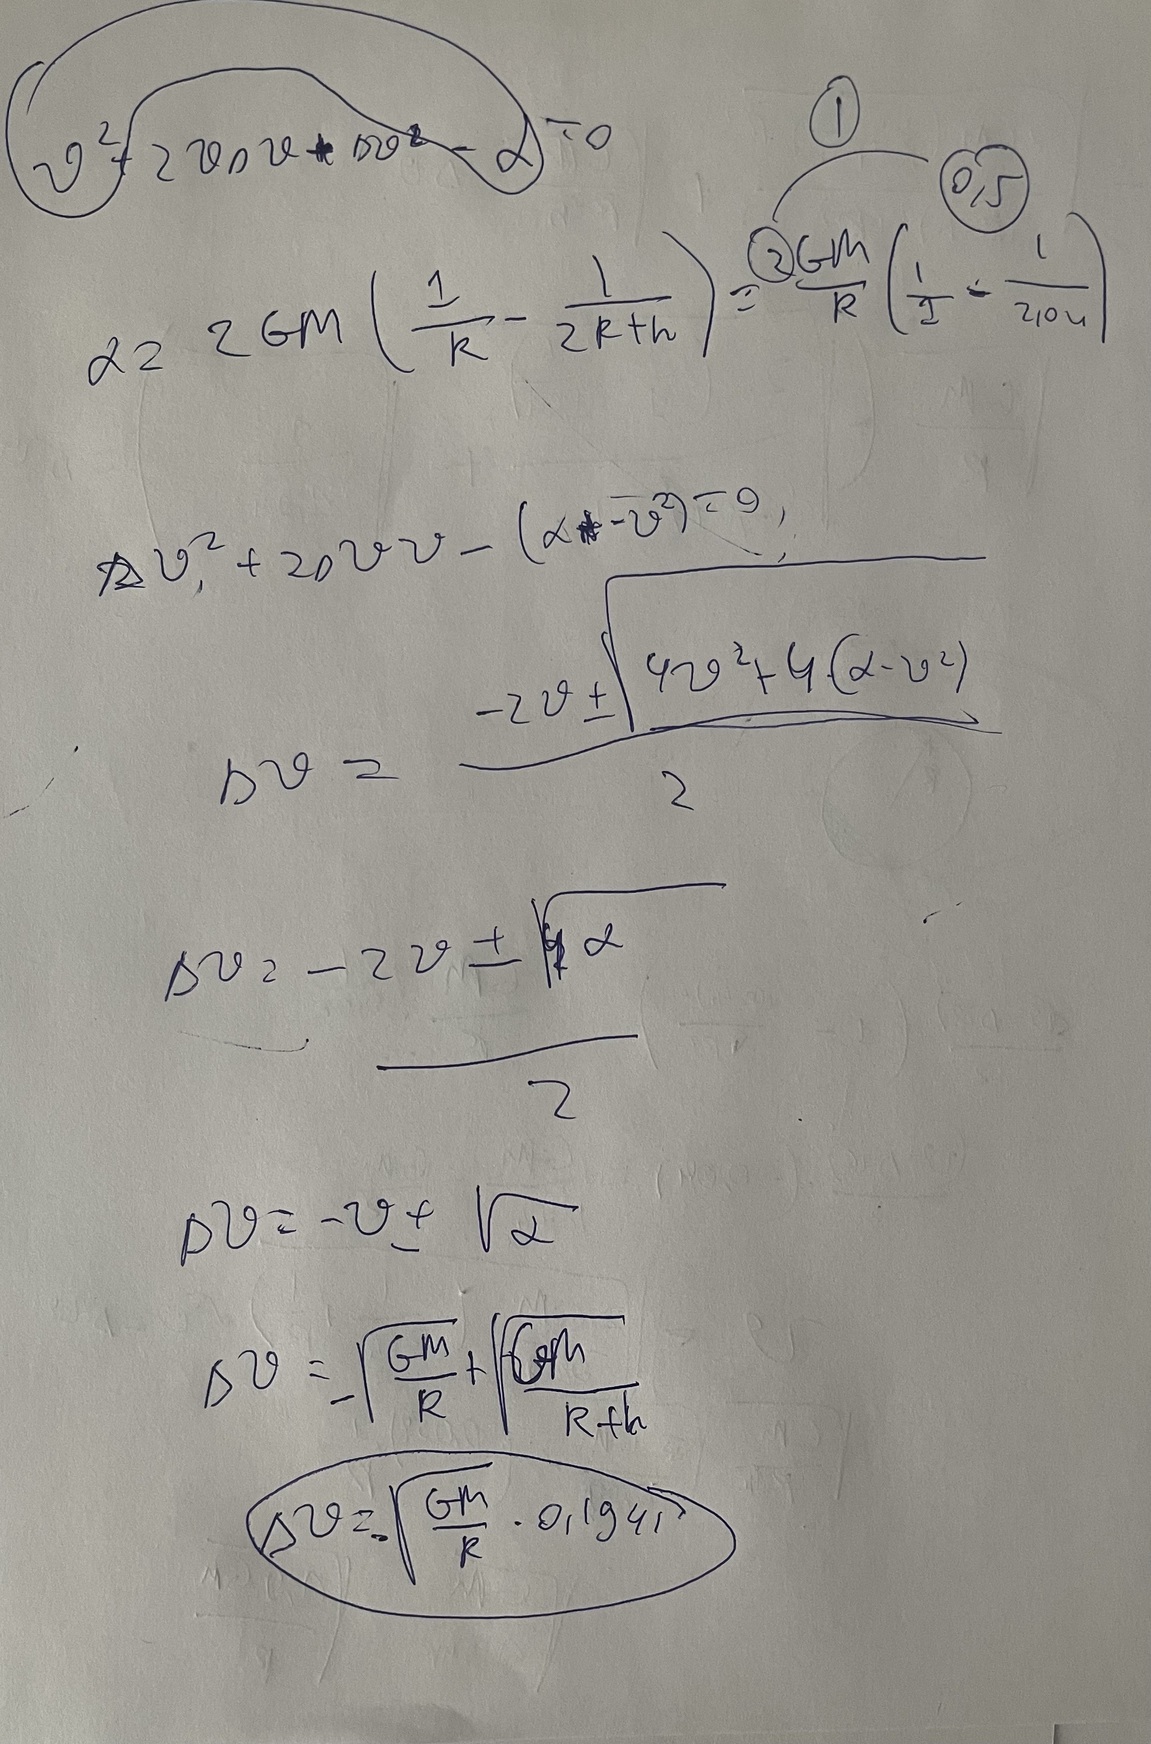 v² + 2vΔv + Δv² - α = 0
α = 2GM (1/R - 1/(2R+h)) = 2GM/R (1/1 - 1/2,04)
1
0,5
Δv² + 2Δvv - (α - v²) = 0,
Δv = (-2v ± √(4v² + 4(α - v²)))/2
Δv = (-2v ± √(4α))/2
Δv = -v ± √α
Δv = -√(GM/R) + √(GM/(R+h))
Δv = -√(GM/R) · 0,194